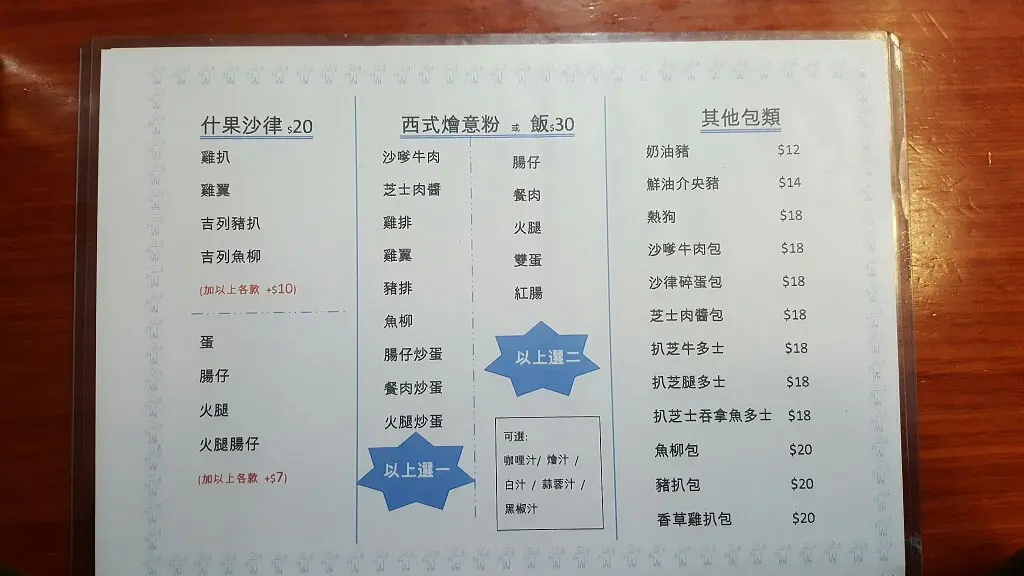 什果沙律 $20
雞扒
雞翼
吉列豬扒
吉列魚柳
(加以上各款 +$10)
蛋
腸仔
火腿
火腿腸仔
(加以上各款 +$7)
西式燴意粉 或 飯$30
沙嗲牛肉
芝士肉醬
雞排
雞翼
豬排
魚柳
腸仔炒蛋
餐肉炒蛋
火腿炒蛋
以上選一
腸仔
餐肉
火腿
雙蛋
紅腸
以上選二
可選:
咖哩汁/ 燴汁 /
白汁 / 蒜蓉汁 /
黑椒汁
其他包類
奶油豬 $12
鮮油介央豬 $14
熱狗 $18
沙嗲牛肉包 $18
沙律碎蛋包 $18
芝士肉醬包 $18
扒芝牛多士 $18
扒芝腿多士 $18
扒芝士吞拿魚多士 $18
魚柳包 $20
豬扒包 $20
香草雞扒包 $20